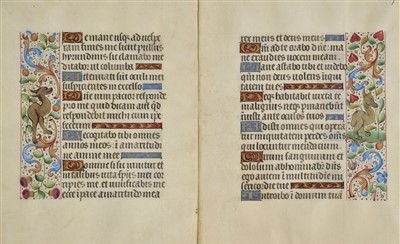 De mane usq ad vespe
ram finies me sicut pullus
hyrundinis sic clamabo me
ditabor ut columba
Attenuati sunt oculi mei
suspicientes in excelso
vim patior responde
pro me quid dicam aut qd
respondebit michi cum ipe
fecerim
Recogitabo tibi omnes
annos meos i amaritudi
ne anime mee
Domine si sic vivitur et
in talibus vita spūs mei cor
ripies me et vivificabis me
ecce i pace amaritudo mea
rex meus et deus meus
Qm ad te orabo dñe ma
ne exaudies vocem meam
Mane astabo tibi et videbo
qm non deus volens iniqui
tatem tu es
Neqz habitabit iuxta te
malignus neqz pmanebūt
iusti ante oculos tuos
Odisti omnes qui opera
tur iniquitatem perdes omīs
qui locuntur mendacium
Virum sanguinum et
dolosum abhominabit dñs
ego autem i multitudine mi
sericordie tue
Introibo i domum tuā